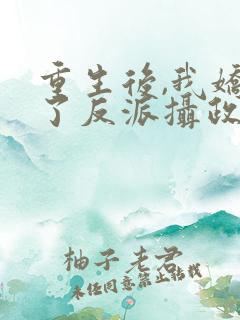 重生後,我嬌
了反派攝政
柚子老君
未任同意禁止轉載